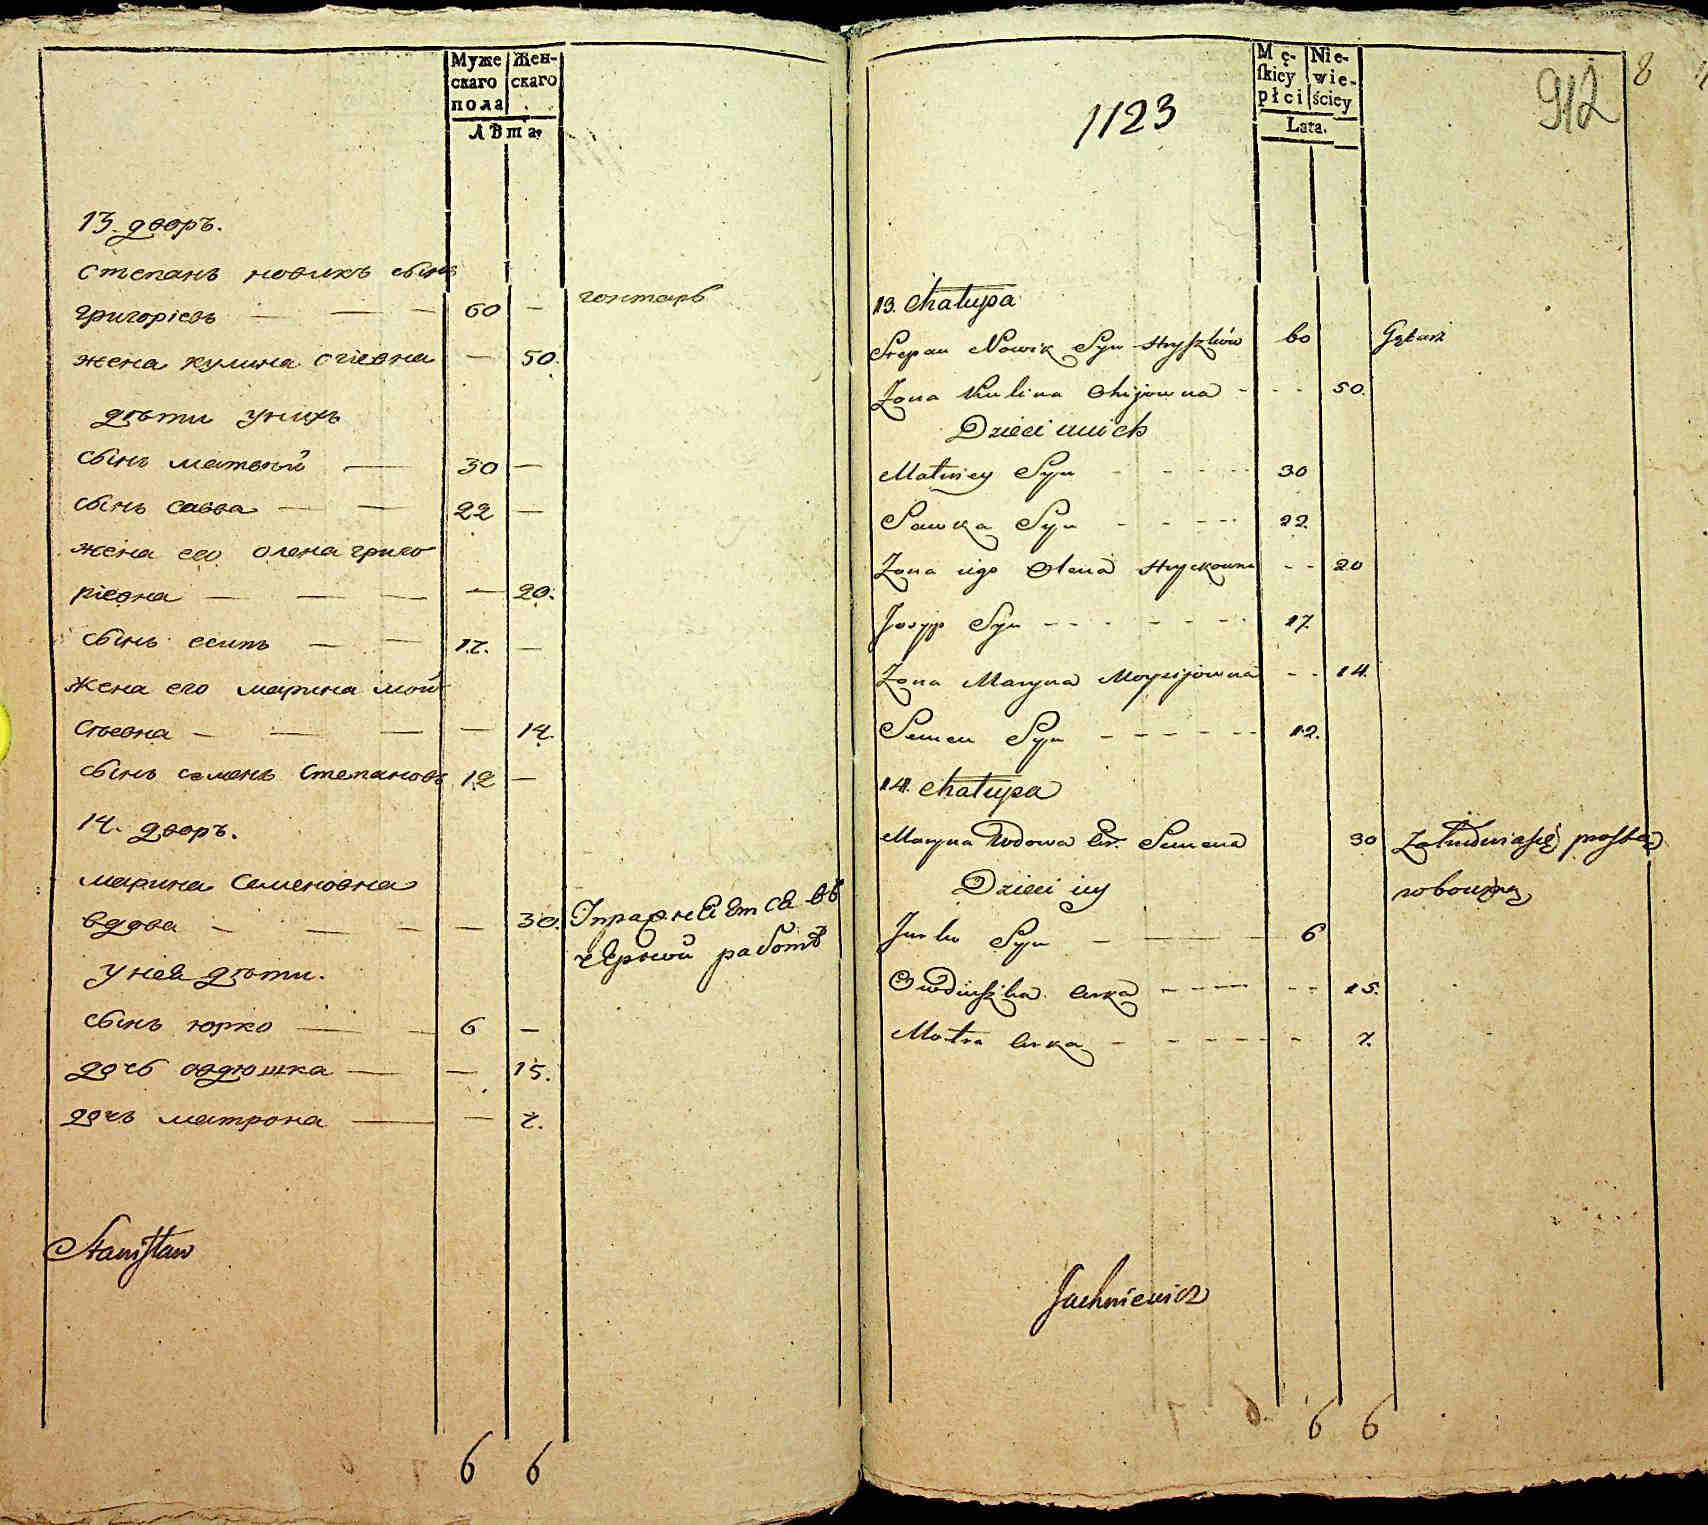 Муже
скаго
пола
Жен-
скаго
Лѣта.
13. дворъ.
Степанъ новикъ сынъ
григоріевъ — — — 60 — гонтарь
жена кулина огіевна — 50.
дѣти унихъ
сынъ матвѣй — 30 —
сынъ савва — — 22 —
жена его олена григо
ріевна — — — — 20.
сынъ есипъ — — 17. —
Жена его марина мой
сѣевна — — — — 14.
сынъ семенъ Степановъ 12 —
14. дворъ.
марина Семеновна
вдова — — — — 30. Упражняѣтся въ
чѣрной работѣ
У нея дѣти.
сынъ юрко — — 6 —
дочь овдюшка — — 15.
дочъ матрона — — 7.
Stanisław
6 6
8
912
1123
Mę-
skiey
płci
Nie-
wie-
ściey
Lata.
13. Chałupa
Stepan Nowik Syn Hryszków 60
Żona Kulina Ohijowna - - - 50.
Dzieci unich
Matwiey Syn - - - - 30
Sawka Syn - - - - 22.
Żona iego Olena Hryckowna - - 20
Josyp Syn - - - - - - 17.
Żona Maryna Moysijowna - - 14.
Semen Syn - - - - - - 12.
14. Chałupa
Maryna Wdowa Cór. Semena 30 Zatrudnia się prostą
robocizną
Dzieci iey
Jurko Syn - - - - 6
Owdiuszka Curka - - - - - - 15.
Motra Curka - - - - - - 7.
Jachniewicz
6 6